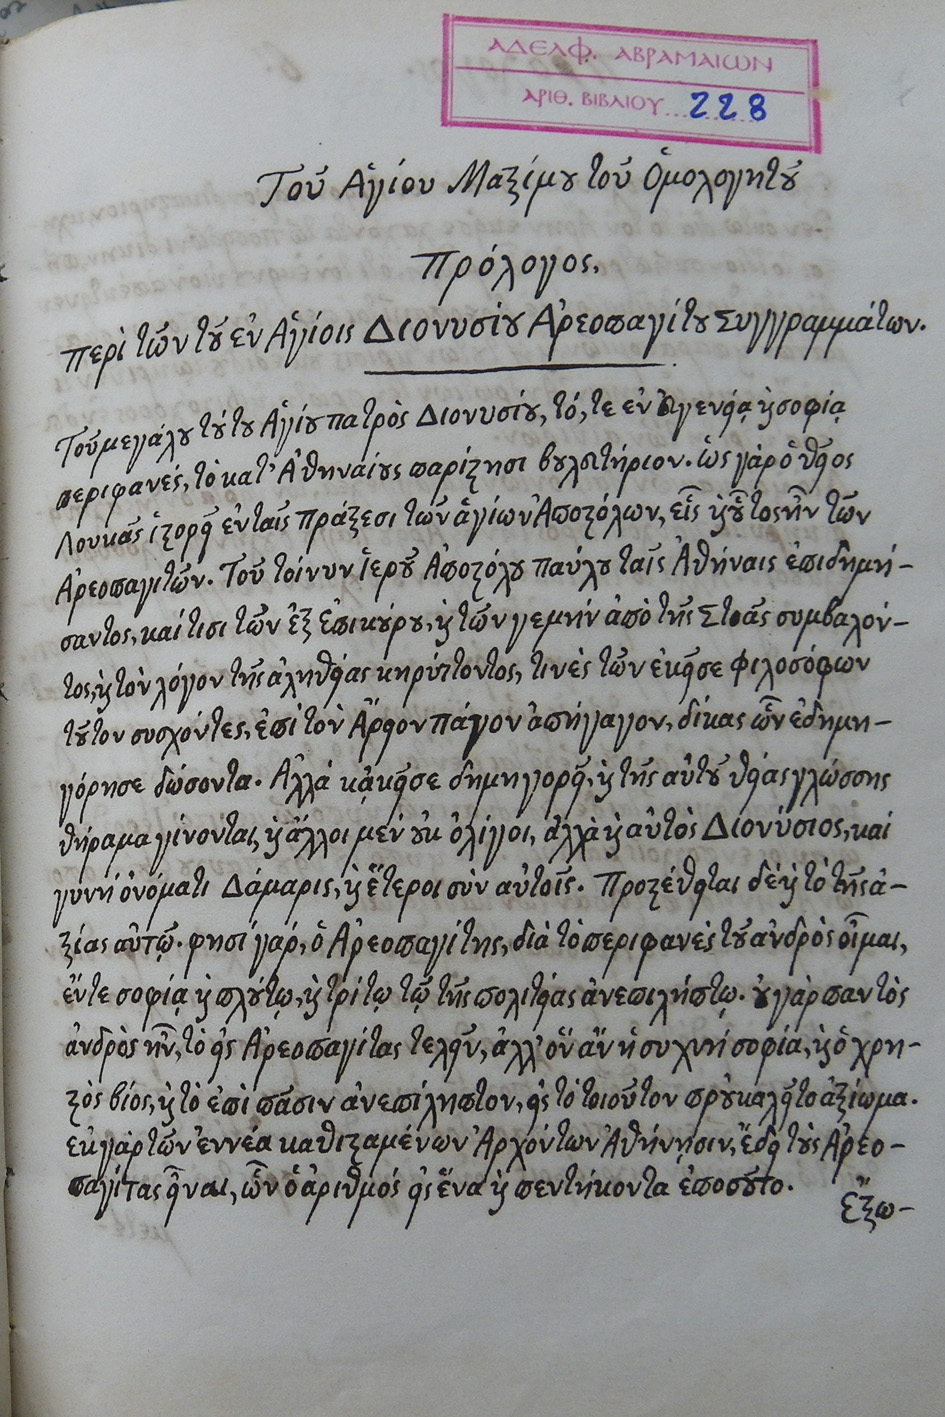 ΑΔΕΛΦ. ΑΒΡΑΜΑΙΩΝ
ΑΡΙΘ. ΒΙΒΛΙΟΥ 228
Τοῦ Ἁγίου Μαξίμου τοῦ Ὁμολογητοῦ
Πρόλογος.
Περὶ τῶν τοῦ ἐν Ἁγίοις Διονυσίου Ἀρεοπαγίτου Συγγραμμάτων.
Τοῦ μεγάλου τούτου Ἁγίου πατρὸς Διονυσίου, τό,τε ἐν εὐγενείᾳ καὶ σοφίᾳ
περιφανές, τὸ κατ' Ἀθηναίους παρίστησι βουλευτήριον. ὡς γὰρ ὁ θεῖος
Λουκᾶς ἱστορεῖ ἐν ταῖς πράξεσι τῶν ἁγίων Ἀποστόλων, εἷς καὶ οὗτος ἦν τῶν
Ἀρεοπαγιτῶν. Τοῦ τοίνυν Ἱεροῦ Ἀποστόλου παύλου ταῖς Ἀθήναις ἐπιδημή-
σαντος, καί τισι τῶν ἐξ Ἐπικούρου, καὶ τῶν γεμὴν ἀπὸ τῆς Στοᾶς συμβαλόν-
τος, καὶ τὸν λόγον τῆς ἀληθείας κηρύττοντος, τινὲς τῶν ἐκεῖσε φιλοσόφων
τοῦτον συσχόντες, ἐπὶ τὸν Ἄρειον πάγον ἀπήγαγον, δίκας ὧν ἐδημη-
γόρησε δώσοντα. Ἀλλὰ κᾀκεῖσε δημηγορεῖ, καὶ τῆς αὐτοῦ θείας γλώσσης
θήραμα γίνονται, καὶ ἄλλοι μὲν οὐκ ὀλίγοι, ἀλλὰ καὶ αὐτὸς Διονύσιος, καὶ
γυνὴ ὀνόματι Δάμαρις, καὶ ἕτεροι σὺν αὐτοῖς. Προστέθειται δὲ καὶ τὸ τῆς ἀ-
ξίας αὐτῷ. φησὶ γάρ, ὁ Ἀρεοπαγίτης, διὰ τὸ περιφανὲς τοῦ ἀνδρὸς οἶμαι,
ἔντε σοφίᾳ καὶ πλούτῳ, καὶ τρίτῳ τῷ τῆς πολιτείας ἀνεπιλήπτῳ. οὐ γὰρ παντὸς
ἀνδρὸς ἦν, τὸ εἰς Ἀρεοπαγίτας τελεῖν, ἀλλ' ὃν ἂν ἡ συχνὴ σοφία, καὶ ὁ χρη-
στὸς βίος, καὶ τὸ ἐπὶ πᾶσιν ἀνεπίληπτον, εἰς τὸ τοιοῦτον προὐκαλεῖτο ἀξίωμα.
ἐκ γὰρ τῶν ἐννέα καθισταμένων Ἀρχόντων Ἀθήνῃσιν, ἔδει τοὺς Ἀρεο-
παγίτας εἶναι, ὧν ὁ ἀριθμὸς εἰς ἕνα καὶ πεντήκοντα ἐποσοῦτο.
Ἔξω-